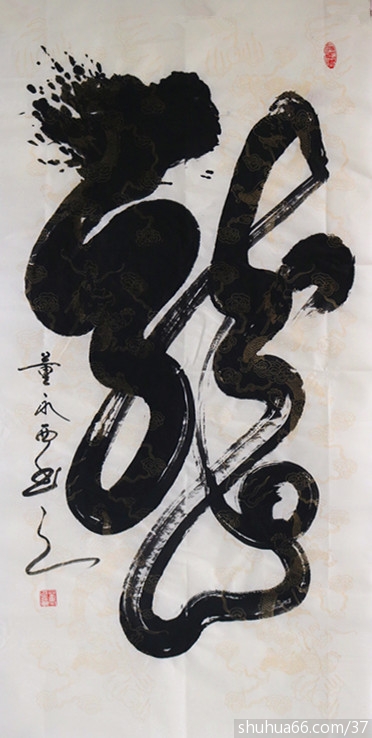 龍
董永西书之
shuhua66.com/37